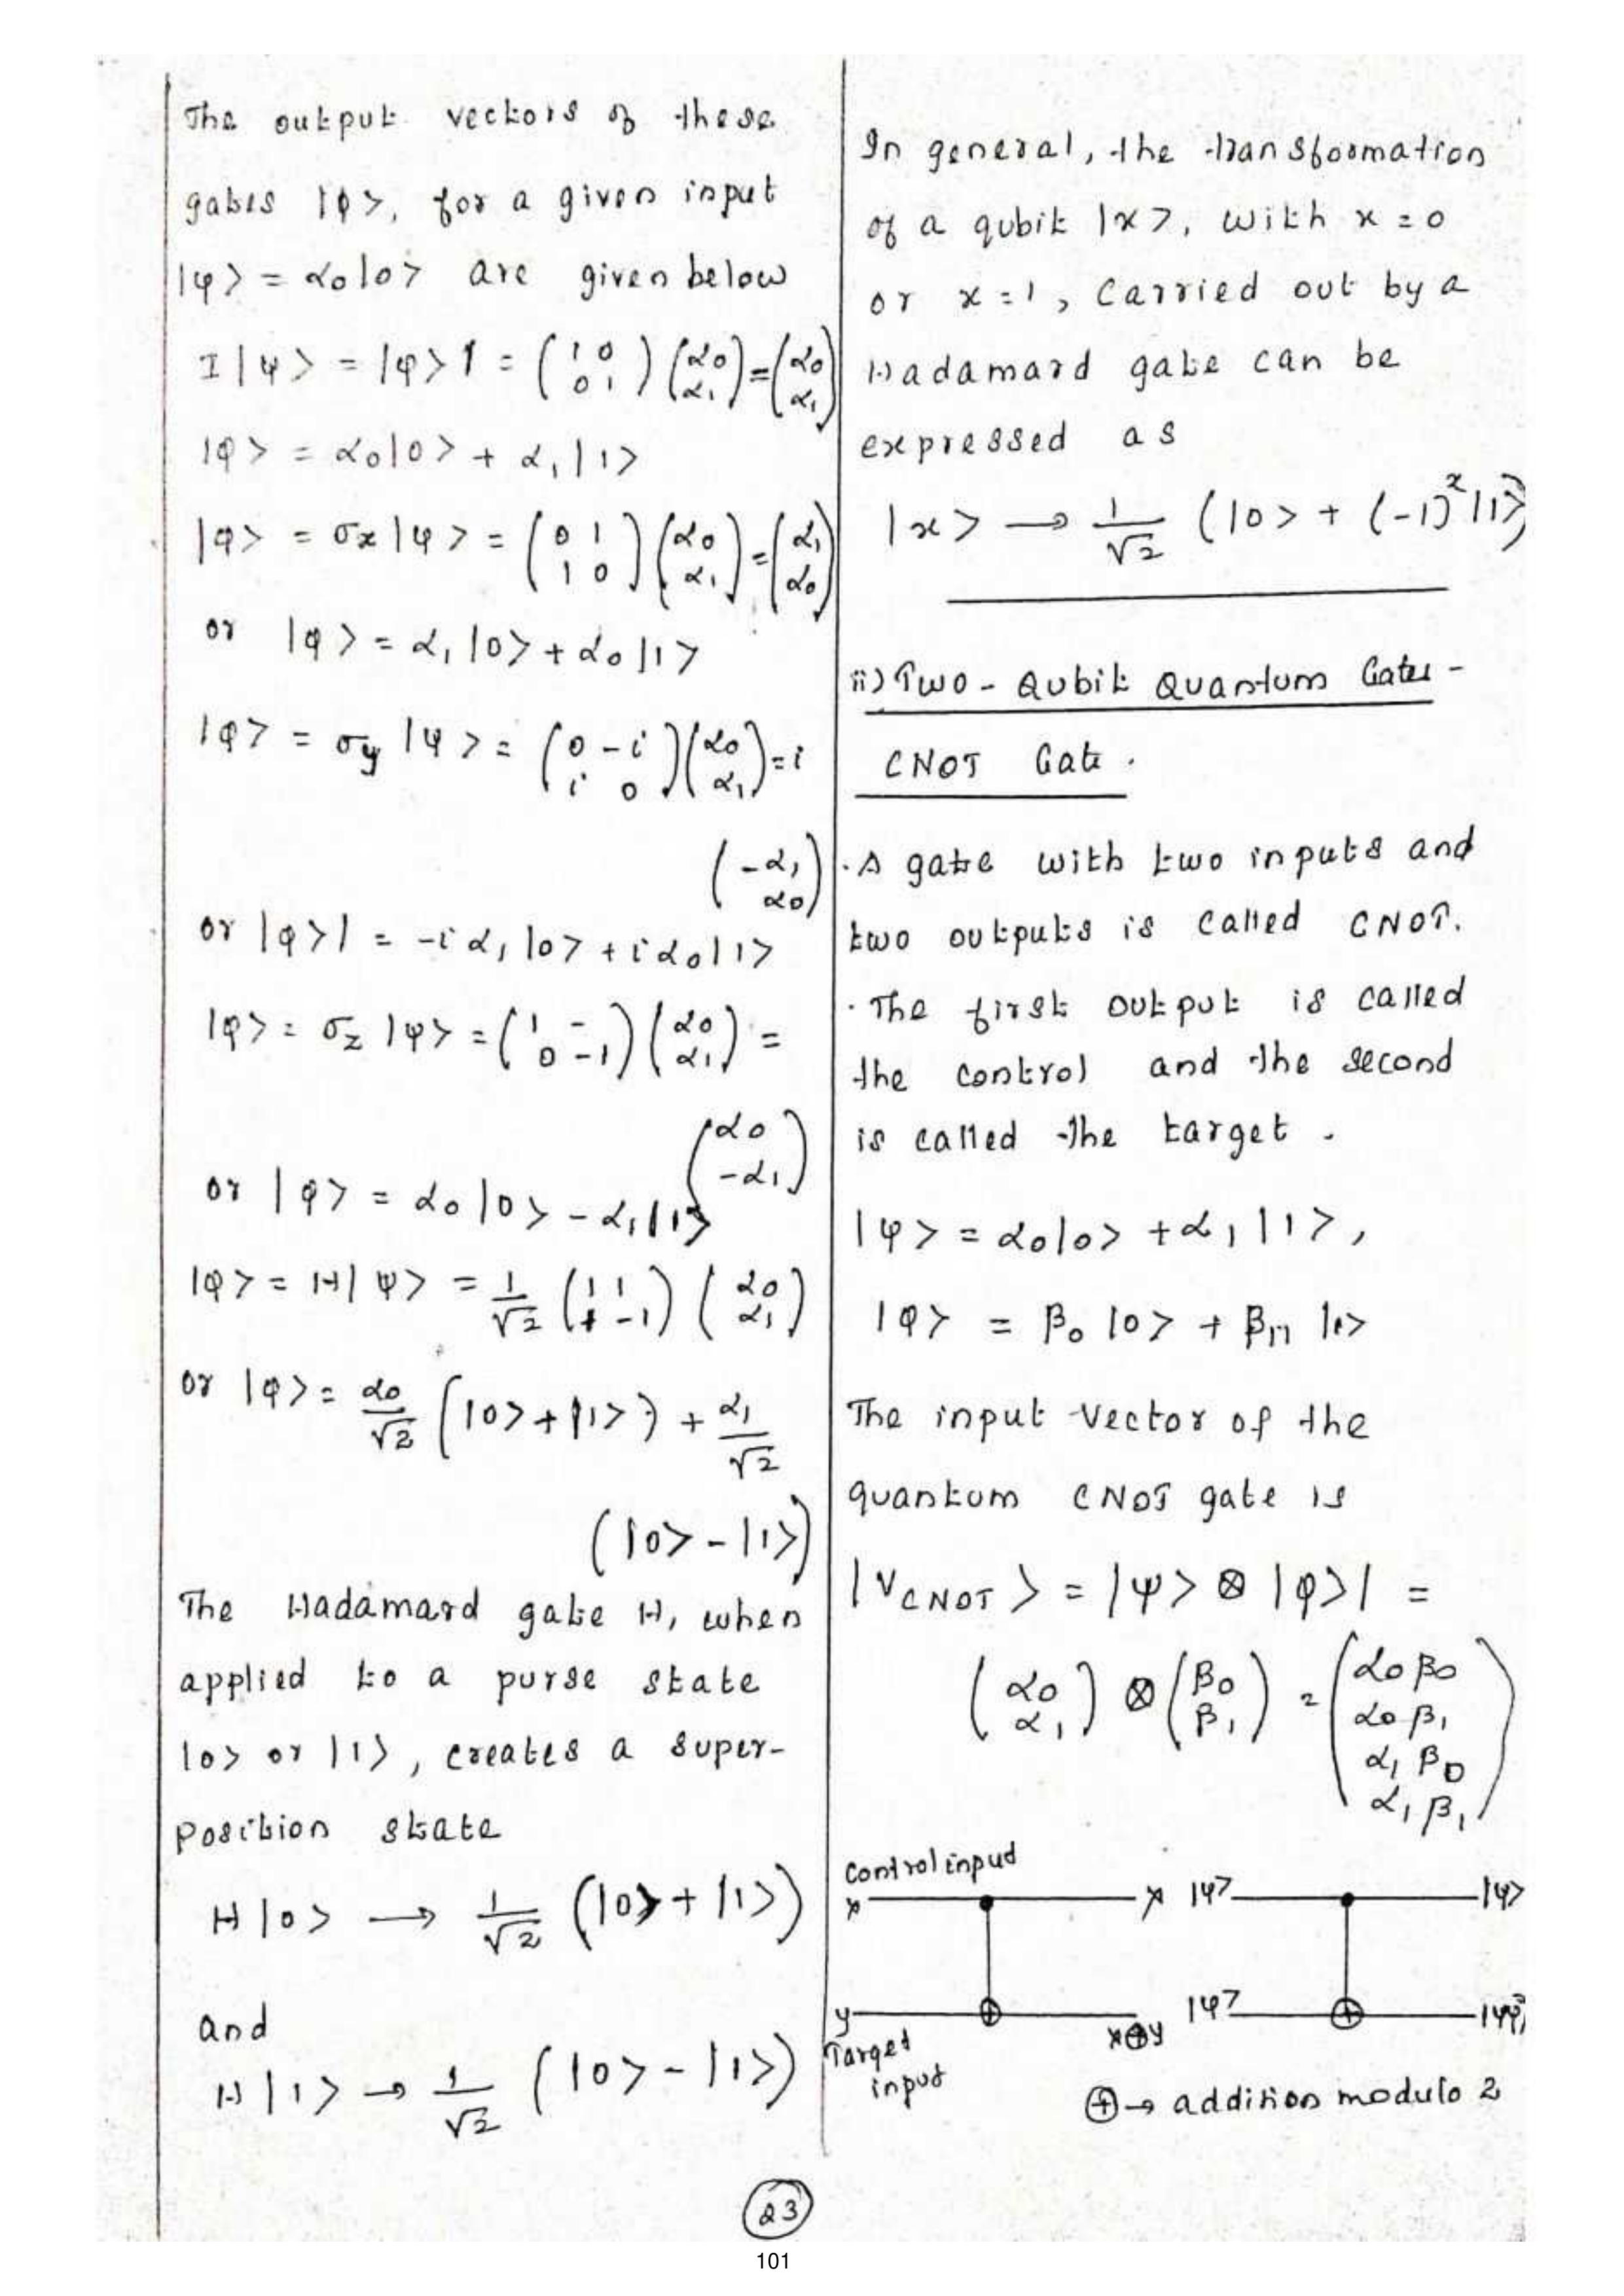 The output vectors of these
gates |φ>, for a given input
|ψ> = α₀|0> are given below
I|ψ> = |φ>1 = (1 0 / 0 1) (α₀ / α₁) = (α₀ / α₁)
|φ> = α₀|0> + α₁|1>
|φ> = σx|ψ> = (0 1 / 1 0) (α₀ / α₁) = (α₁ / α₀)
or |φ> = α₁|0> + α₀|1>
|φ> = σy|ψ> = (0 -i / i 0) (α₀ / α₁) = i
(-α₁ / α₀)
or |φ>| = -iα₁|0> + iα₀|1>
|φ> = σz|ψ> = (1 - / 0 -1) (α₀ / α₁) =
(α₀ / -α₁)
or |φ> = α₀|0> - α₁|1>
|φ> = H|ψ> = 1/√2 (1 1 / 1 -1) (α₀ / α₁)
or |φ> = α₀/√2 (|0> + |1>) + α₁/√2
(|0> - |1>)
The Hadamard gate H, when
applied to a purse state
|0> or |1>, creates a super-
position state
H|0> → 1/√2 (|0> + |1>)
and
H|1> → 1/√2 (|0> - |1>)
In general, the transformation
of a qubit |x>, with x = 0
or x = 1, carried out by a
Hadamard gate can be
expressed as
|x> → 1/√2 (|0> + (-1)ˣ|1>)
ii) Two - Qubit Quantum Gates -
CNOT Gate .
. A gate with two inputs and
two outputs is called CNOT.
. The first output is called
the control and the second
is called the target .
|ψ> = α₀|0> + α₁|1>,
|φ> = β₀|0> + β₁₁|1>
The input vector of the
quantum CNOT gate is
|V_CNOT> = |ψ> ⊗ |φ>| =
(α₀ / α₁) ⊗ (β₀ / β₁) = (α₀β₀ / α₀β₁ / α₁β₀ / α₁β₁)
Control input
x x |ψ> |ψ>
y x⊕y |ψ>
Target
input
⊕→ addition modulo 2
23
101